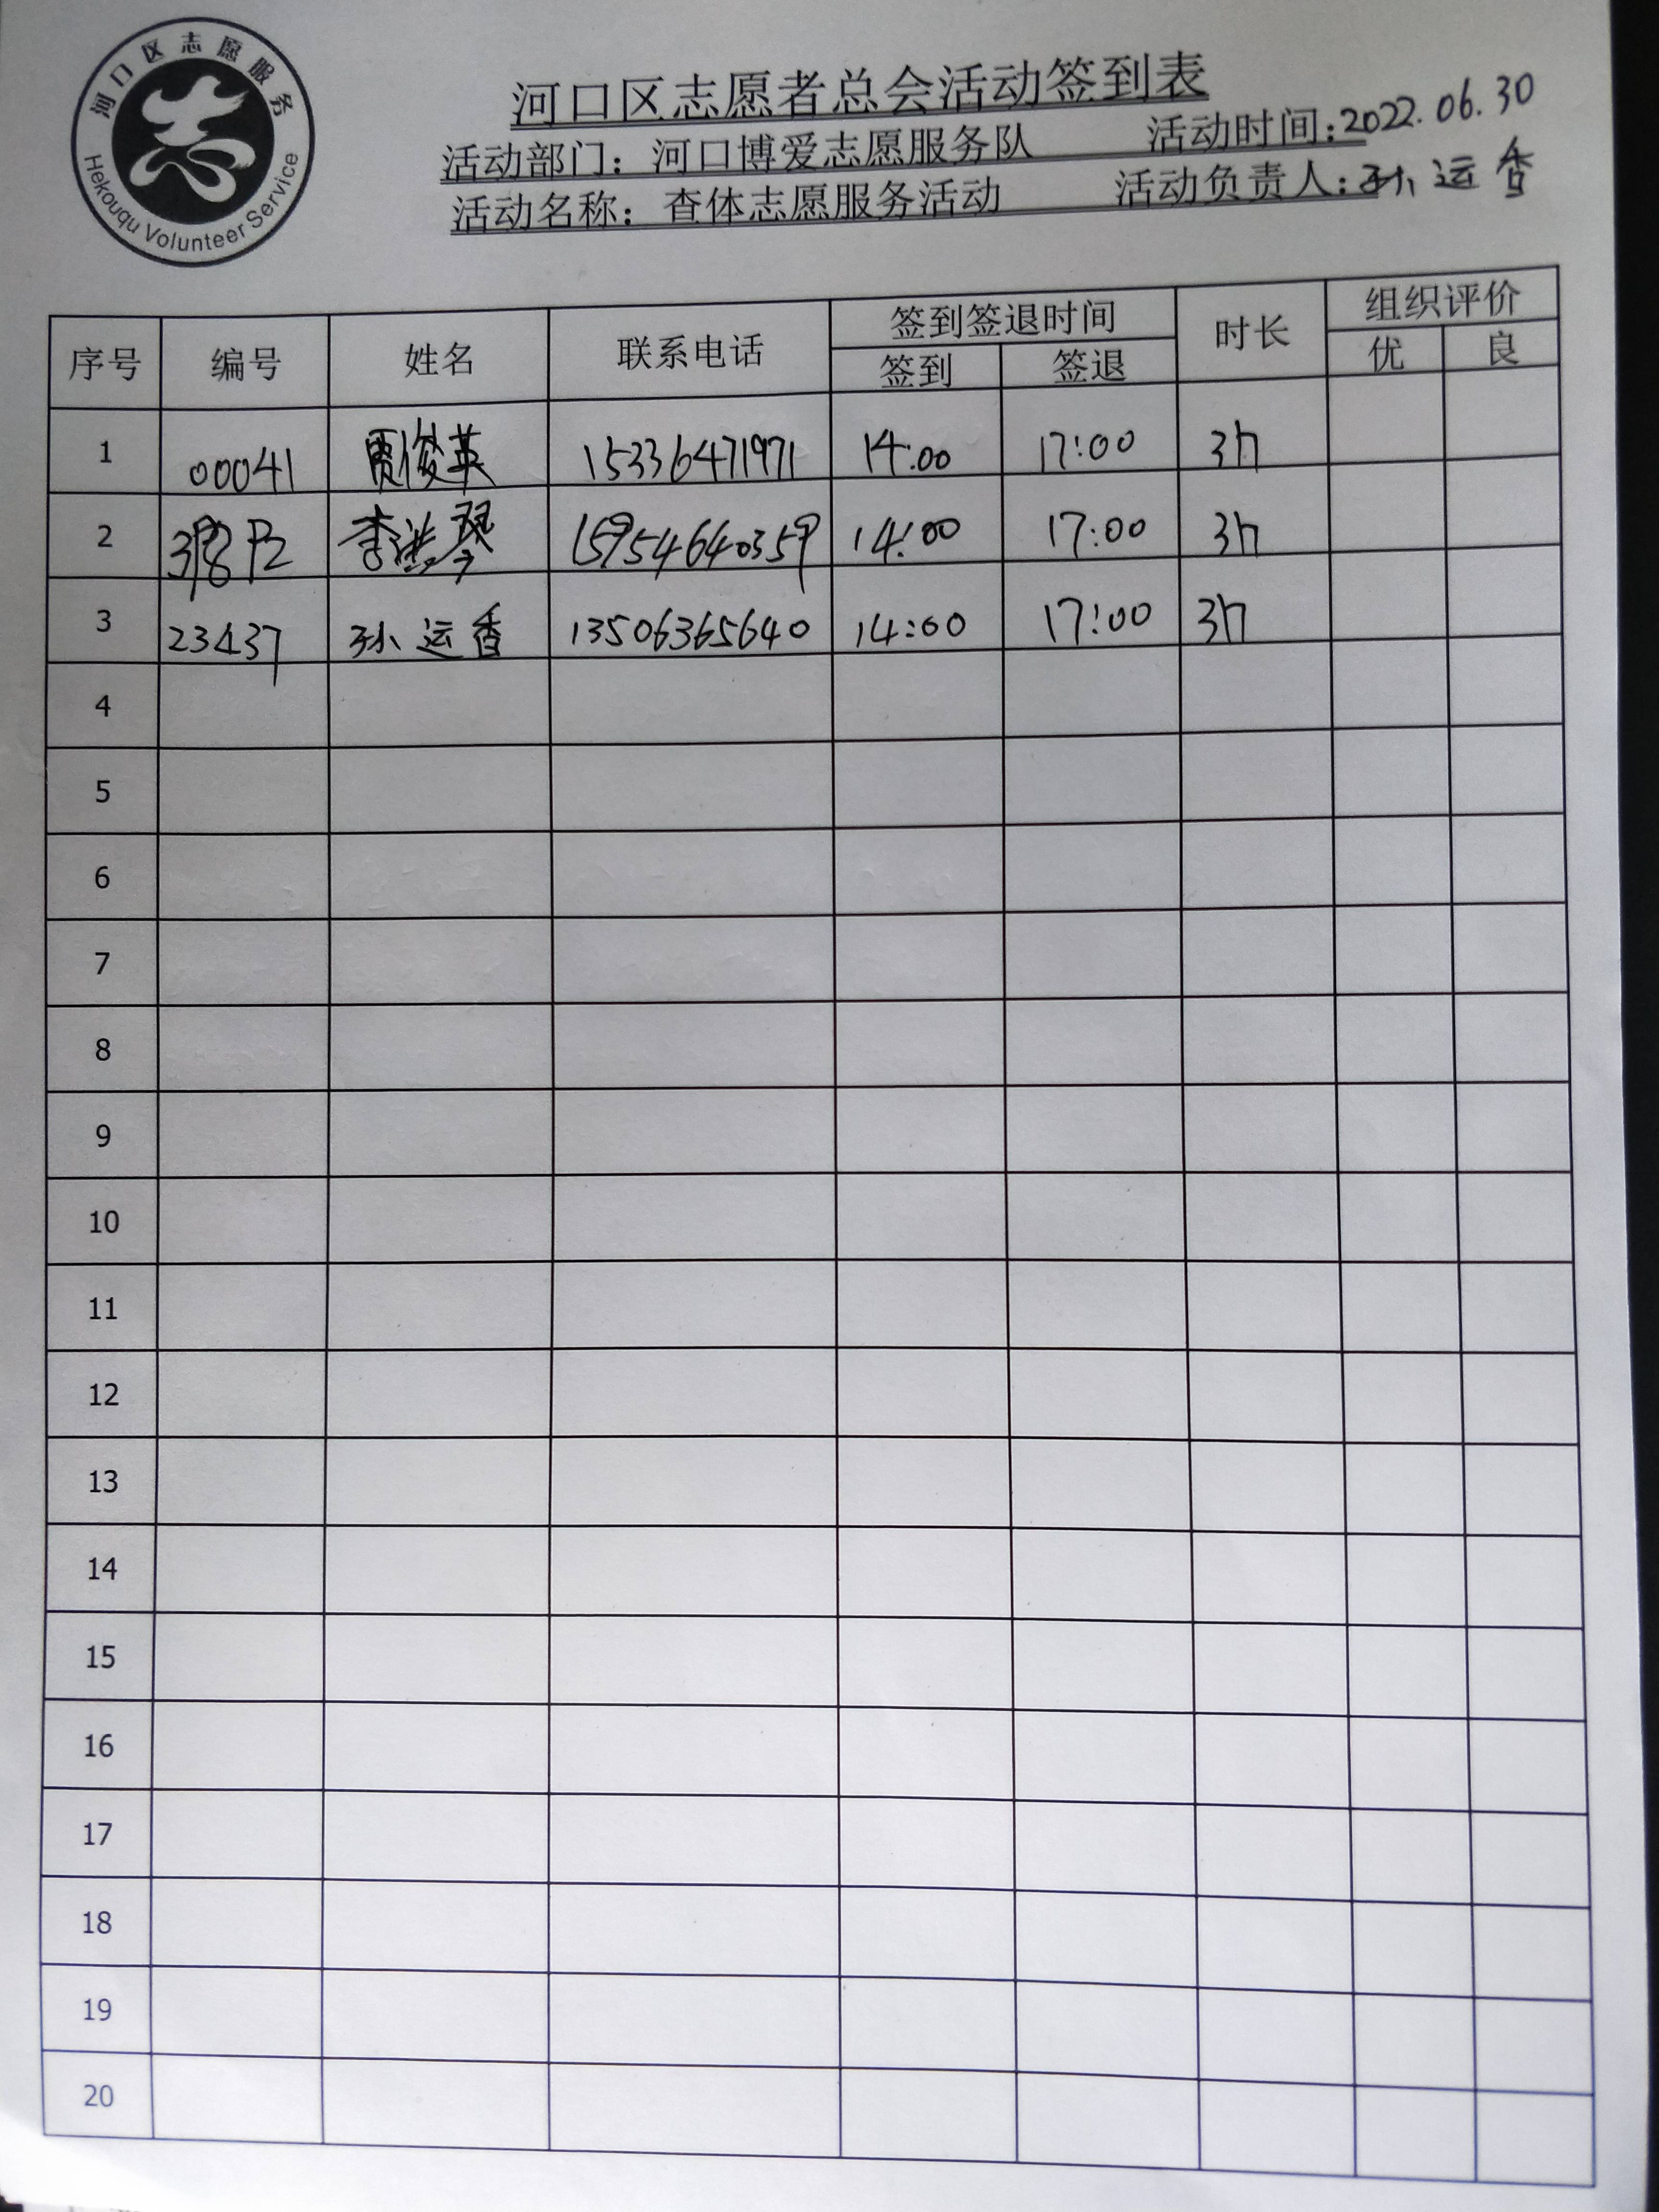 河口区志愿服务
Hekouqu Volunteer Service
河口区志愿者总会活动签到表
活动部门：河口博爱志愿服务队 活动时间：2022.06.30
活动名称：查体志愿服务活动 活动负责人：孙运香
序号 编号 姓名 联系电话 签到签退时间 时长 组织评价
签到 签退 优 良
1 00041 贾俊英 15336471971 14:00 17:00 3h
2 李洪琴 15954640359 14:00 17:00 3h
3 23437 孙运香 13506365640 14:00 17:00 3h
4
5
6
7
8
9
10
11
12
13
14
15
16
17
18
19
20